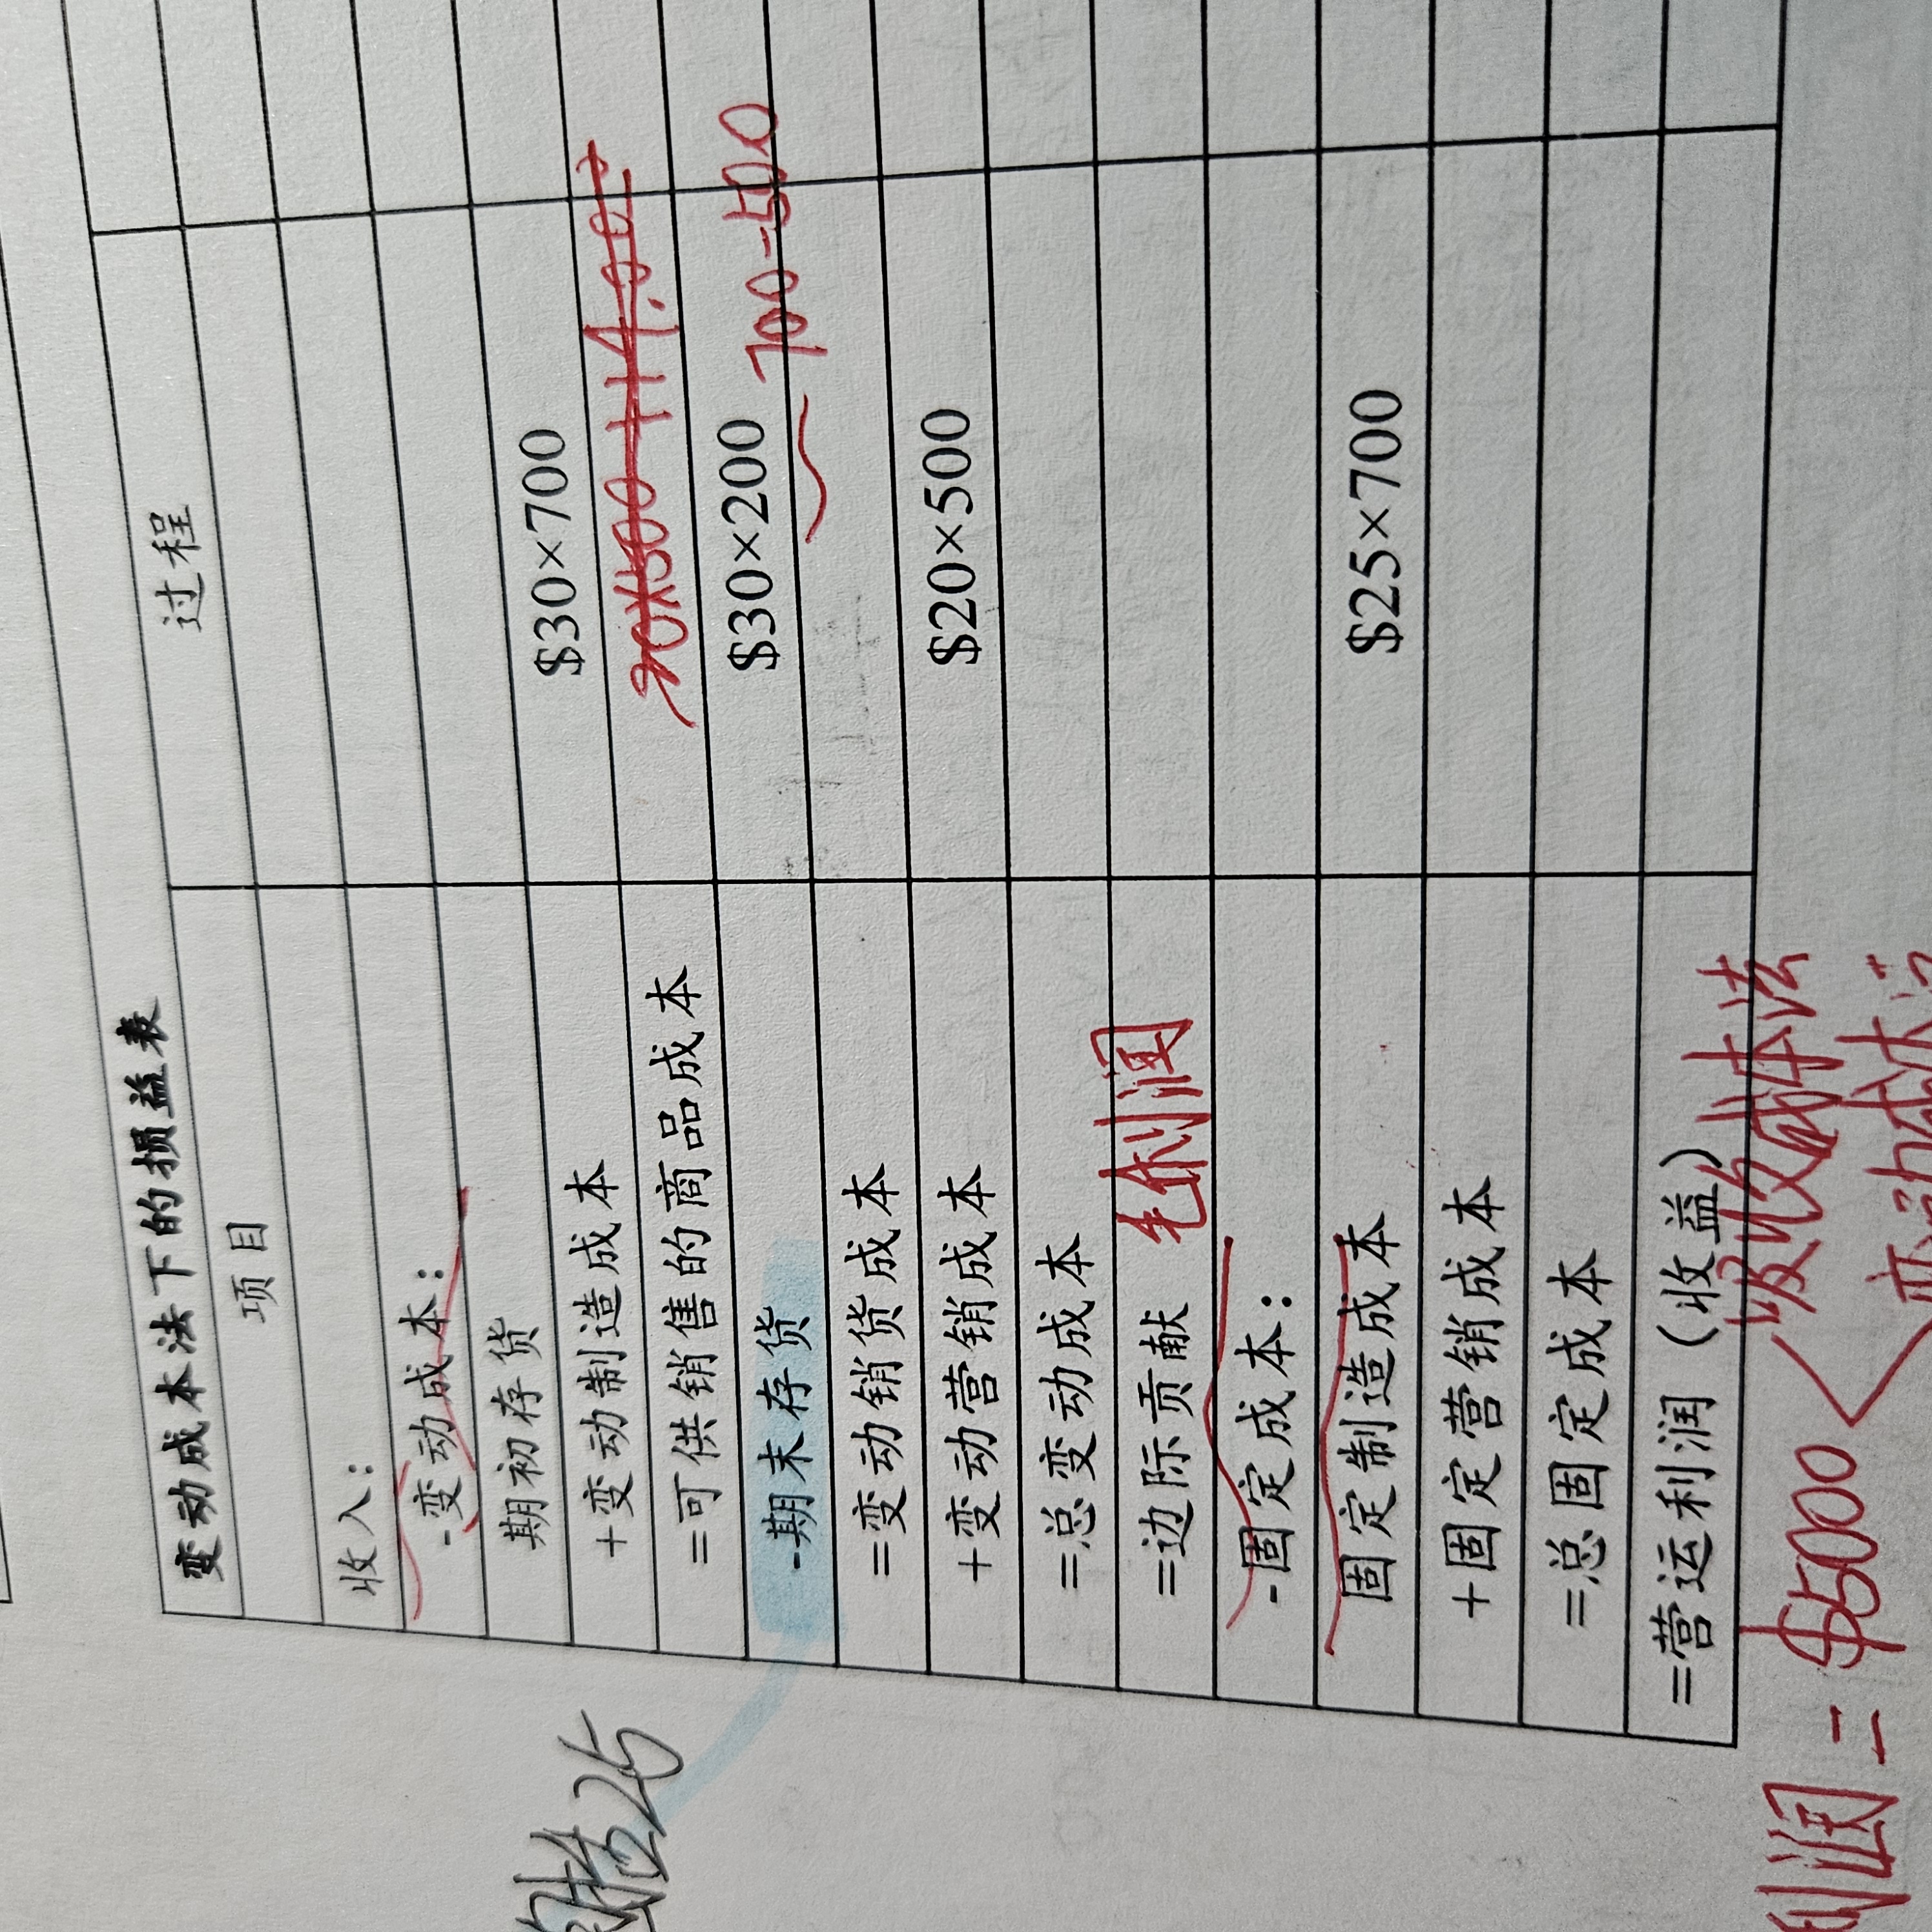 变动成本法下的损益表
项目 过程
收入：
-变动成本：
期初存货 $30×700
+变动制造成本
=可供销售的商品成本
-期末存货 $30×200 700-500
=变动销货成本
+变动营销成本 $20×500
=总变动成本
=边际贡献 毛利润
-固定成本：
固定制造成本 $25×700
+固定营销成本
=总固定成本
=营运利润（收益）
吸收成本法
利润=$5000
变动成本法
25